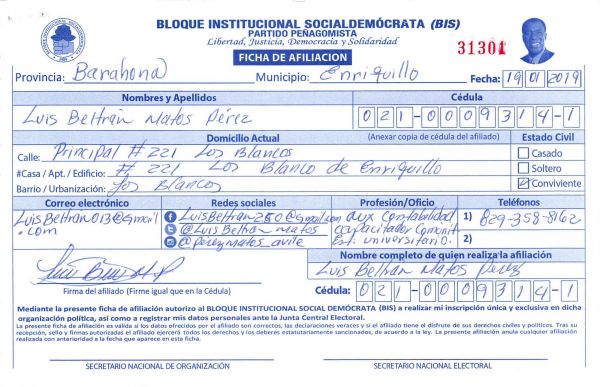 BLOQUE INSTITUCIONAL SOCIALDEMÓCRATA (BIS)
PARTIDO PEÑAGOMISTA
Libertad, Justicia, Democracia y Solidaridad
FICHA DE AFILIACION
31301
Provincia: Barahona Municipio: Enriquillo Fecha: 19 01 2019
Nombres y Apellidos Cédula
Luis Beltrán Matos Pérez 021-0009314-1
Domicilio Actual (Anexar copia de cédula del afiliado) Estado Civil
Calle: Principal # 221 Los Blancos Casado
#Casa / Apt. / Edificio: # 221 Los Blanco de Enriquillo Soltero
Barrio / Urbanización: Los Blancos Conviviente
Correo electrónico Redes sociales Profesión/Oficio Teléfonos
LuisBeltran013@gmail.com LuisBeltran250@gmail.com Aux Contabilidad 1) 829-358-8162
@Luis Beltran_matos capacitador Comunit 2)
@perezmatos_avile Est. universitario.
Nombre completo de quien realiza la afiliación
Luis Beltran Matos Perez
Firma del afiliado (Firme igual que en la Cédula) Cédula: 021-0009314-1
Mediante la presente ficha de afiliación autorizo al BLOQUE INSTITUCIONAL SOCIAL DEMÓCRATA (BIS) a realizar mi inscripción única y exclusiva en dicha
organización política, así como a registrar mis datos personales ante la Junta Central Electoral.
La presente ficha de afiliación es válida si los datos ofrecidos por el afiliado son correctos, las declaraciones veraces y si el afiliado tiene el disfrute de sus derechos civiles y políticos. Tras su
recepción, sello y firmas autorizadas el afiliado ejercerá todos los derechos y los deberes estatutariamente sancionados, de acuerdo a la ley. La presente afiliación anula cualquier afiliación
realizada con anterioridad a la fecha que aparece en esta ficha.
SECRETARIO NACIONAL DE ORGANIZACIÓN SECRETARIO NACIONAL ELECTORAL